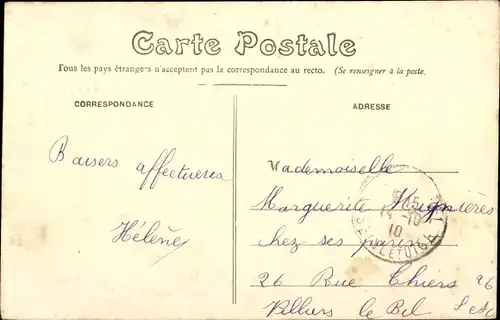 Carte Postale
Tous les pays étrangers n'acceptent pas la correspondance au recto. (Se renseigner à la poste.
CORRESPONDANCE
ADRESSE
Baisers affectueux
Hélène
Mademoiselle
Marguerite
chez ses
26 Rue Thiers 26
Villiers le Bel S et O
15
10
10